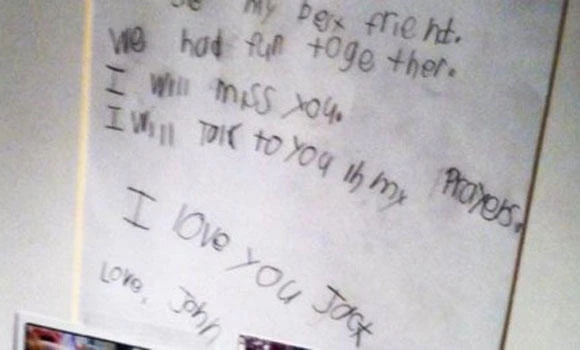 my best friend.
We had fun together.
I will miss you.
I will Talk to you in my Prayers.
I love you Jack
Love, John